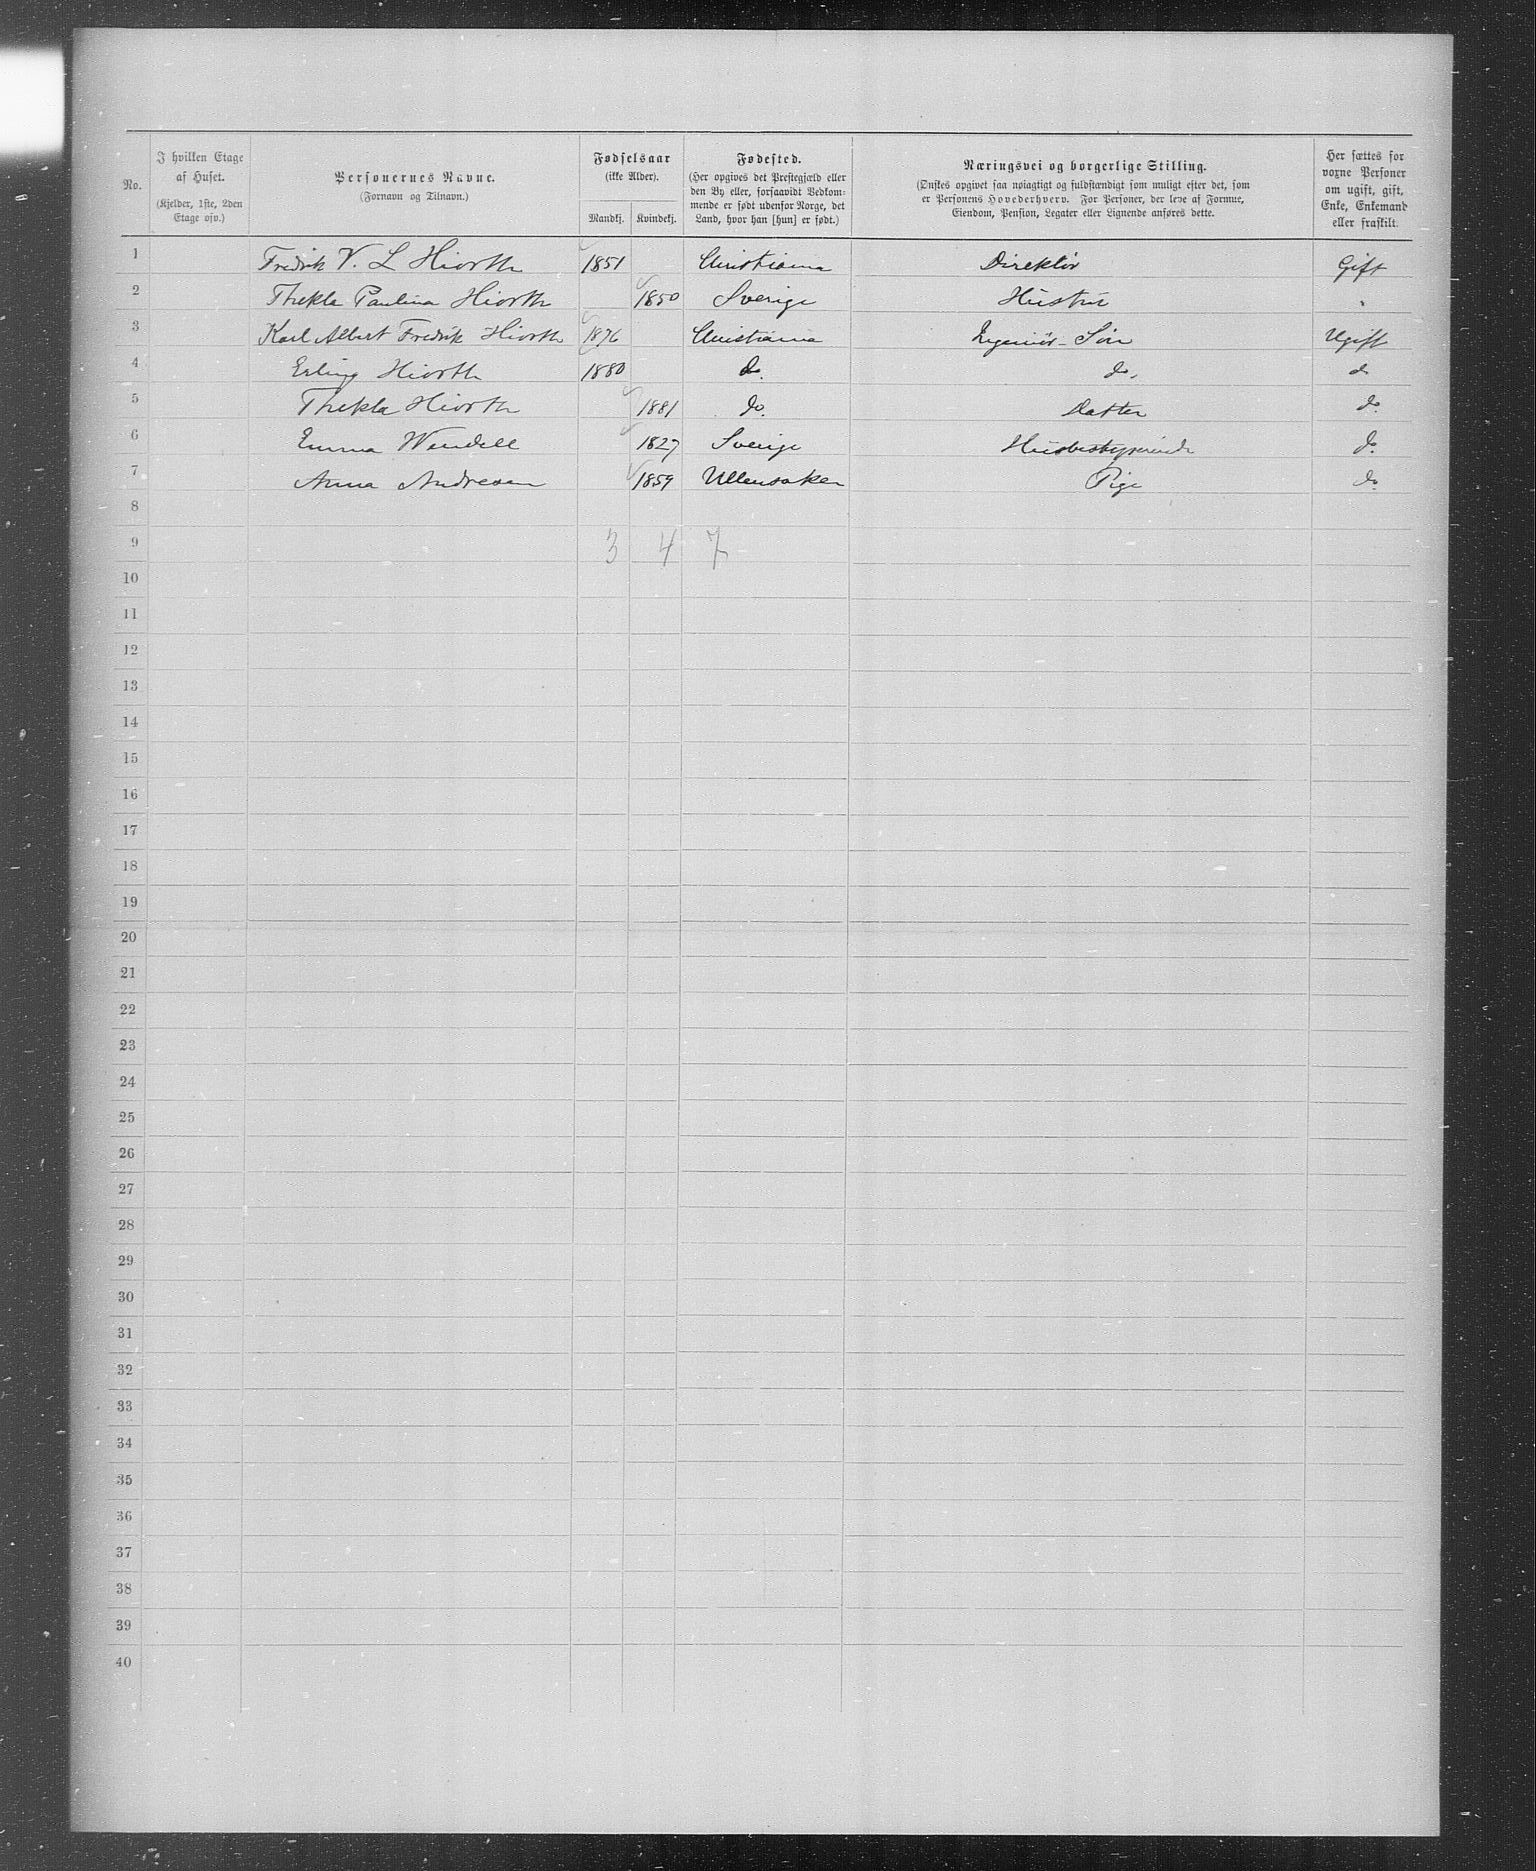 No.
I hvilken Etage af Huset.
(Kjelder, 1ste, 2den Etage osv.)
Personernes Navne.
(Fornavn og Tilnavn.)
Fødselsaar
(ikke Alder).
Mandkj. Kvindekj.
Fødested.
(Her opgives det Præstegjæld eller
den By eller, forsaavidt Vedkom-
mende er født udenfor Norge, det
Land, hvor han [hun] er født.)
Næringsvei og borgerlige Stilling.
(Ønskes opgivet saa nøiagtigt og fuldstændigt som muligt efter det, som
er Personens Hovederhverv. For Personer, der leve af Formue,
Eiendom, Pension, Legater eller Lignende anføres dette.
Her sættes for
voxne Personer
om ugift, gift,
Enke, Enkemand
eller fraskilt.
1 Fredrik V. L Hiorth 1851 Christiania Direktör Gift
2 Thekla Paulina Hiorth 1850 Sverige Hustru "
3 Karl Albert Fredrik Hiorth 1876 Christiania Ingeniör - Sön Ugift
4 Erling Hiorth 1880 do. do. do
5 Thekla Hiorth 1881 do. Datter do.
6 Emma Wendell 1827 Sverige Husbestyrerinde do.
7 Anna Andresen 1859 Ullensaker Pige do.
8
9 3 4 7
10
11
12
13
14
15
16
17
18
19
20
21
22
23
24
25
26
27
28
29
30
31
32
33
34
35
36
37
38
39
40